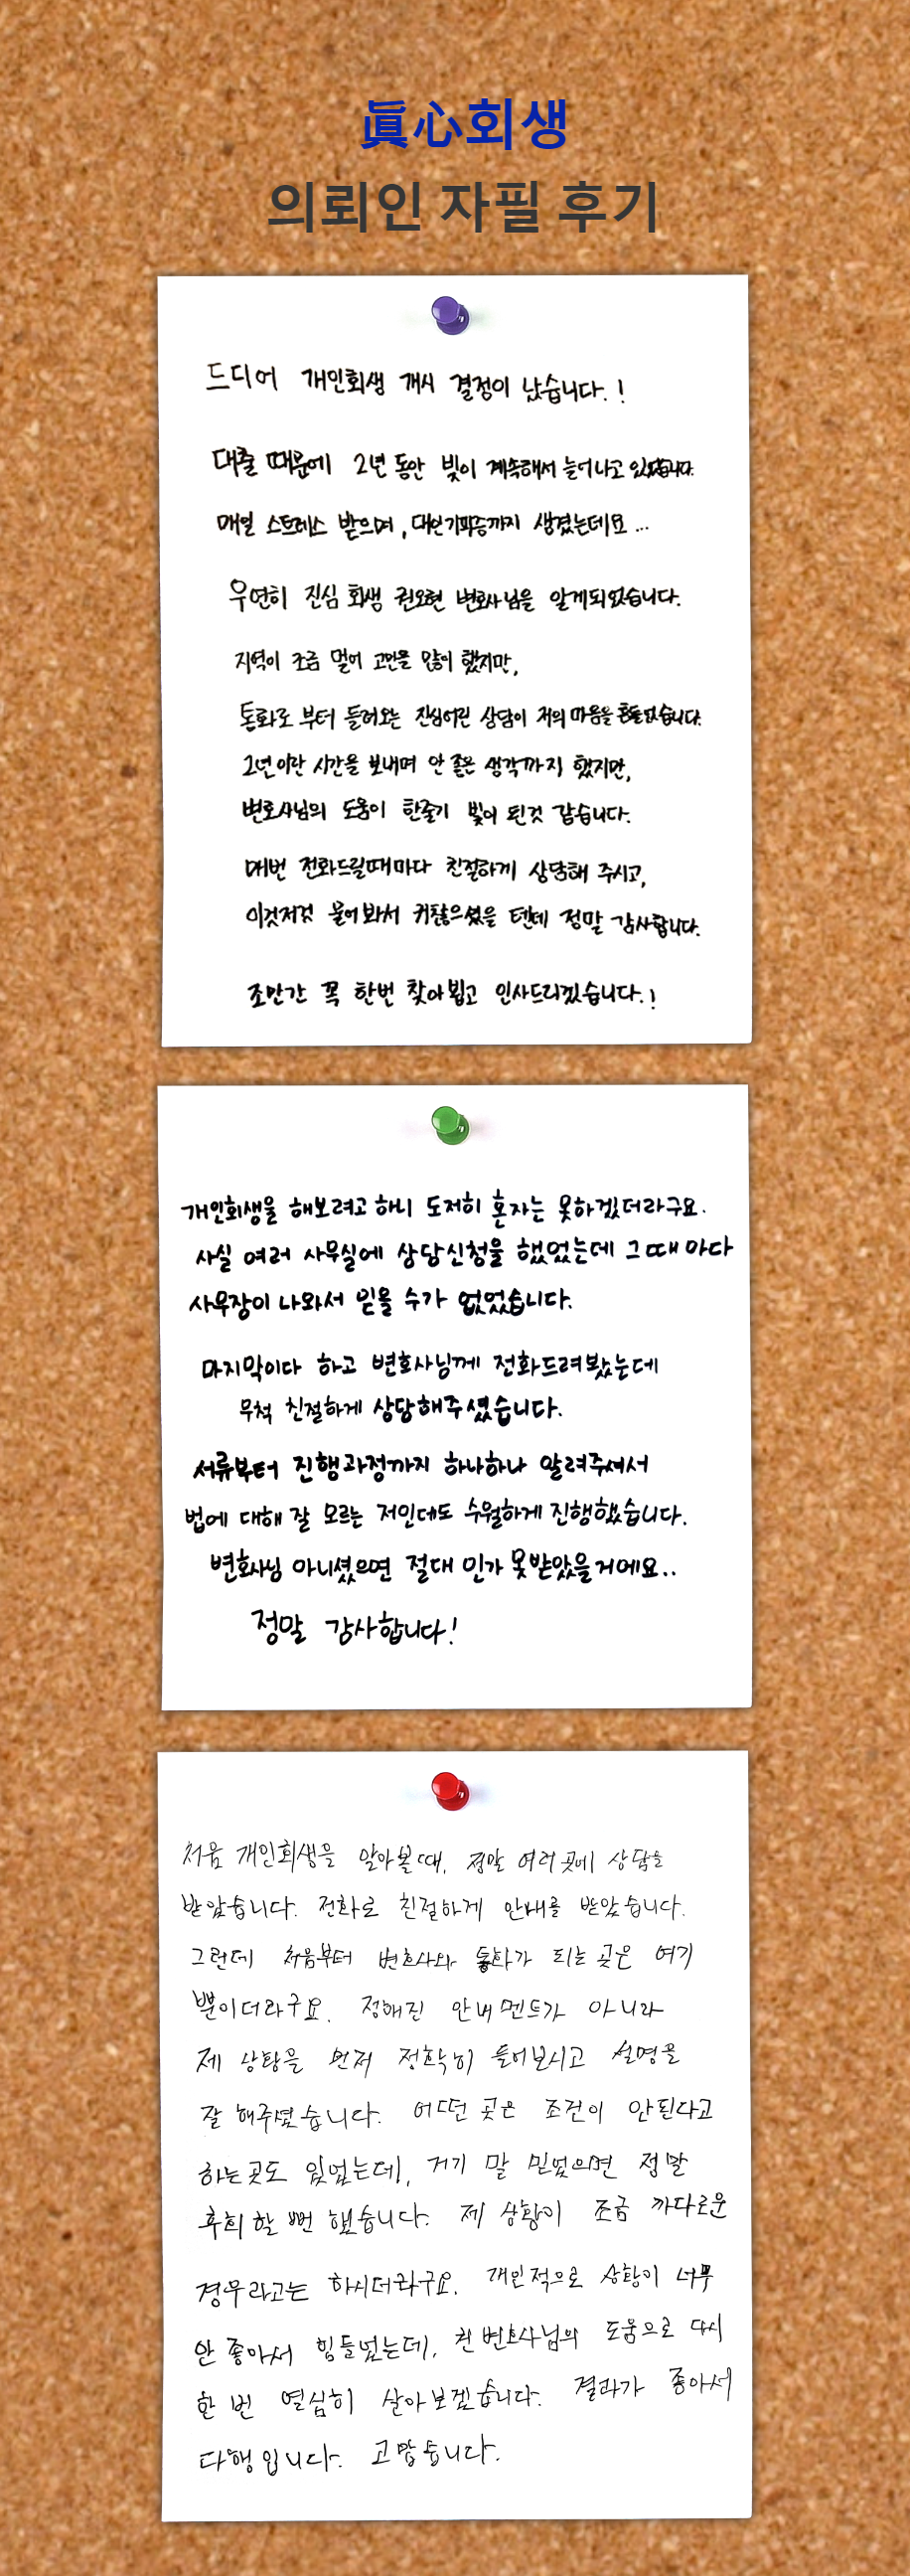 眞心회생
의뢰인 자필 후기
드디어 개인회생 개시 결정이 났습니다.!
대출 때문에 2년 동안 빚이 계속해서 늘어나고 있었습니다.
매일 스트레스 받으며, 대인기피증까지 생겼는데요...
우연히 진심 회생 권오현 변호사님을 알게되었습니다.
지역이 조금 멀어 고민을 많이 했지만,
통화로 부터 들려오는 진심어린 상담이 저의 마음을 흔들었습니다.
2년이란 시간을 보내며 안 좋은 생각까지 했지만,
변호사님의 도움이 한줄기 빛이 된것 같습니다.
매번 전화드릴때마다 친절하게 상담해 주시고,
이것저것 물어봐서 귀찮으셨을 텐데 정말 감사합니다.
조만간 꼭 한번 찾아뵙고 인사드리겠습니다.!
개인회생을 해보려고 하니 도저히 혼자는 못하겠더라구요.
사실 여러 사무실에 상담신청을 했었는데 그때마다
사무장이 나와서 믿을 수가 없었습니다.
마지막이다 하고 변호사님께 전화드려봤는데
무척 친절하게 상담해주셨습니다.
서류부터 진행과정까지 하나하나 알려주셔서
법에 대해 잘 모르는 저인데도 수월하게 진행했습니다.
변호사님 아니셨으면 절대 인가 못받았을거에요..
정말 감사합니다!
처음 개인회생을 알아볼때, 정말 여러곳에 상담을
받았습니다. 전화로 친절하게 안내를 받았습니다.
그런데 처음부터 변호사와 통화가 되는 곳은 여기
뿐이더라구요. 정해진 안내멘트가 아니라
제 상황을 먼저 정확히 들어보시고 설명을
잘 해주셨습니다. 어떤 곳은 조건이 안된다고
하는곳도 있었는데, 거기 말 믿었으면 정말
후회할 뻔 했습니다. 제 상황이 조금 까다로운
경우라고는 하시더라구요. 개인적으로 상황이 너무
안 좋아서 힘들었는데, 권변호사님의 도움으로 다시
한 번 열심히 살아보겠습니다. 결과가 좋아서
다행입니다. 고맙습니다.